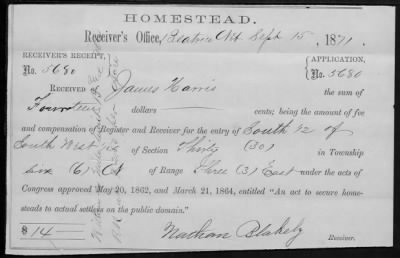 HOMESTEAD.
Receiver's Office, Beatrice Nb Sept 15, 1871.
RECEIVER'S RECEIPT, APPLICATION,
No. 5680 No. 5680
RECEIVED James Harris the sum of
Fourteen dollars cents; being the amount of fee
and compensation of Register and Receiver for the entry of South 1/2 of
South West 1/4 of Section Thirty (30) in Township
six (6) N of Range Three (3) East under the acts of
Congress approved May 20, 1862, and March 21, 1864, entitled "An act to secure home-
steads to actual settlers on the public domain."
$ 14 — Nathan Blakely
Receiver.